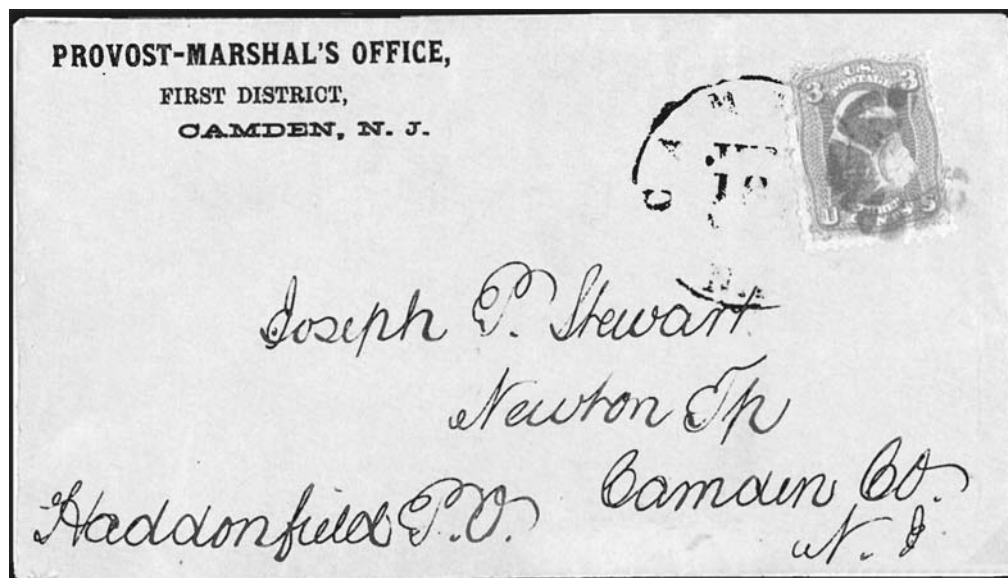 PROVOST-MARSHAL'S OFFICE,
FIRST DISTRICT,
CAMDEN, N. J.
U.S. POSTAGE
3 3
U S
Joseph P. Stewart
Newton Tp
Camden Co.
Haddonfield P.O.
N. J